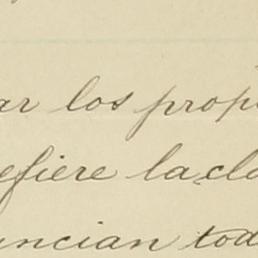 ar los prop
efiere la cla
uncian tod